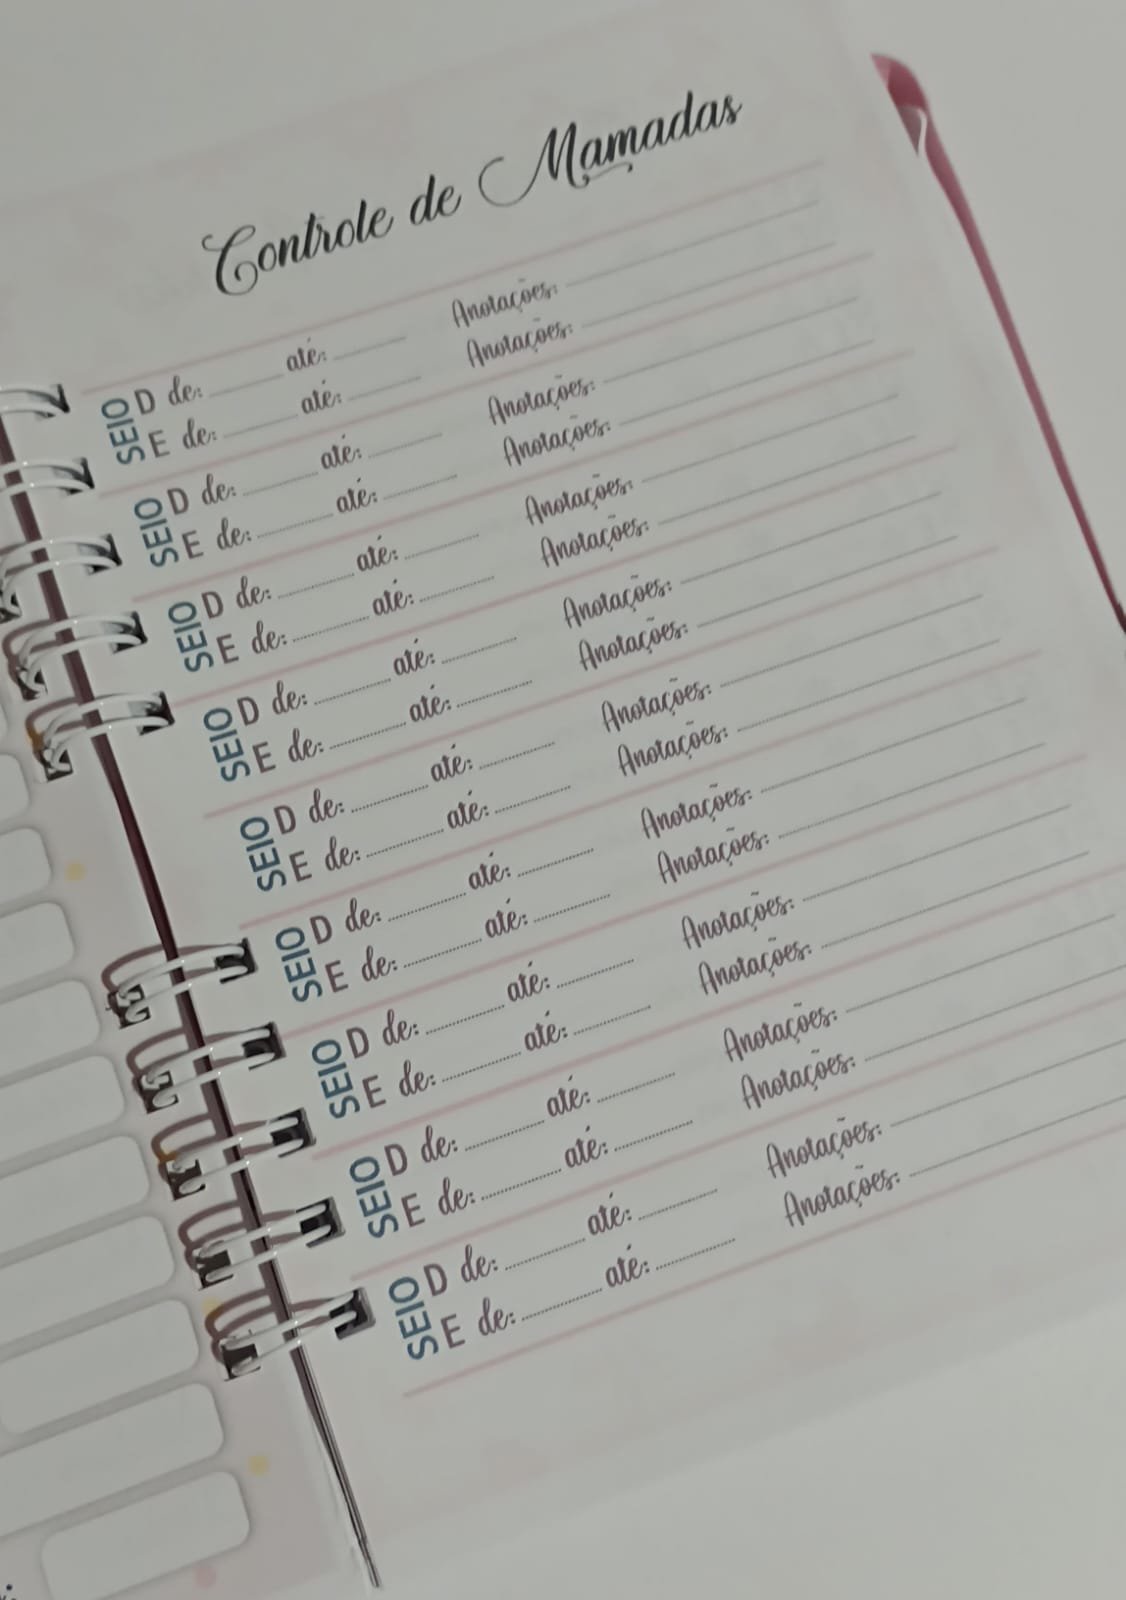 Controle de Mamadas
SEIO
D de: até: Anotações:
E de: até: Anotações:
SEIO
D de: até: Anotações:
E de: até: Anotações:
SEIO
D de: até: Anotações:
E de: até: Anotações:
SEIO
D de: até: Anotações:
E de: até: Anotações:
SEIO
D de: até: Anotações:
E de: até: Anotações:
SEIO
D de: até: Anotações:
E de: até: Anotações:
SEIO
D de: até: Anotações:
E de: até: Anotações:
SEIO
D de: até: Anotações:
E de: até: Anotações:
SEIO
D de: até: Anotações:
E de: até: Anotações: